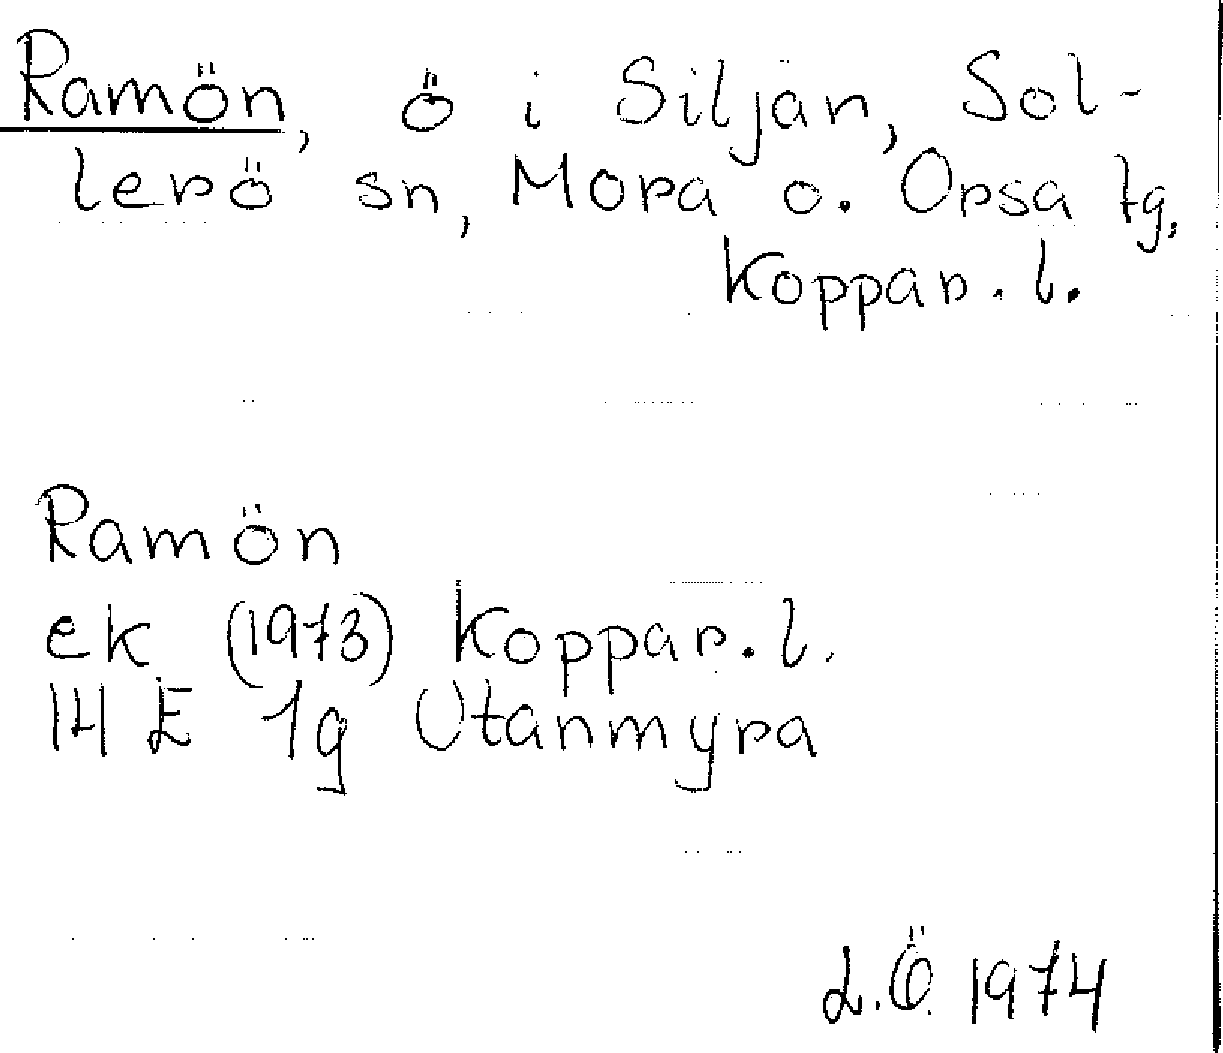 Ramön, ö i Siljan, Sol-
lerö sn, Mora o. Orsa tg,
Koppar. l.
Ramön
ek (1973) Koppar. l.
14 E 1g Utanmyra
L.Ö. 1974